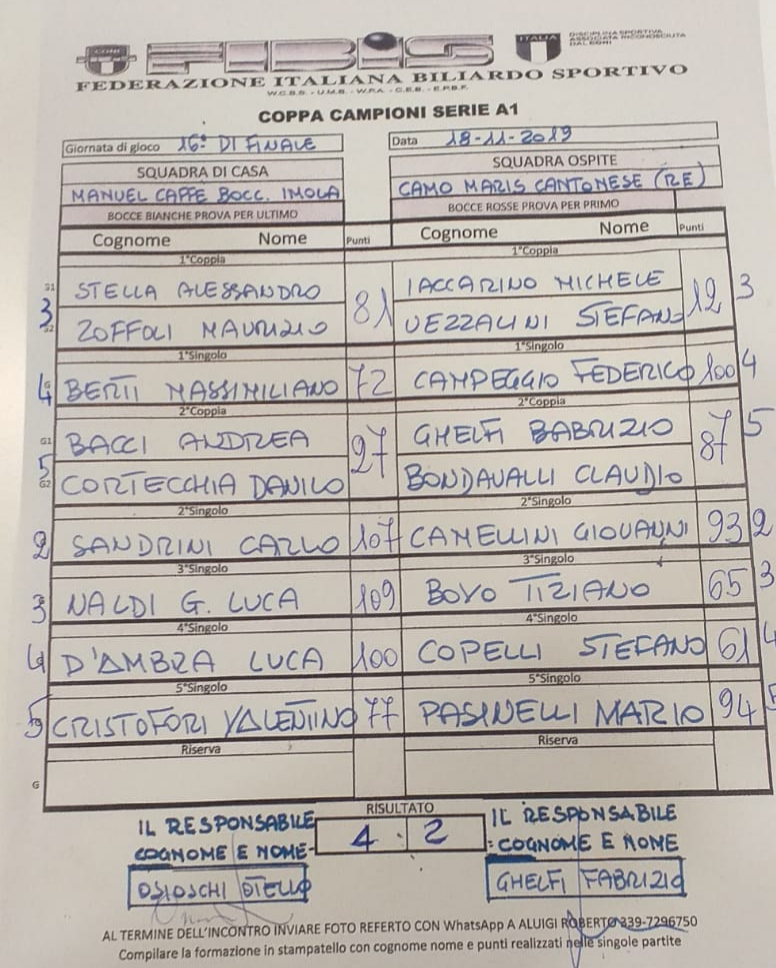 CONI FIBiS ITALIA DISCIPLINA SPORTIVA
ASSOCIATA RICONOSCIUTA
DAL CONI
FEDERAZIONE ITALIANA BILIARDO SPORTIVO
W.C.B.S. - U.M.B. - W.P.A. - C.E.B. - E.P.B.F.
COPPA CAMPIONI SERIE A1
Giornata di gioco 16° DI FINALE Data 18-11-2019
SQUADRA DI CASA SQUADRA OSPITE
MANUEL CAFFE BOCC. IMOLA CAMO MARIS CANTONESE (RE)
BOCCE BIANCHE PROVA PER ULTIMO BOCCE ROSSE PROVA PER PRIMO
Cognome Nome Punti Cognome Nome Punti
1°Coppia 1°Coppia
STELLA ALESSANDRO IACCARINO MICHELE
3 81 12 3
ZOFFOLI MAURIZIO VEZZALINI STEFANO
1°Singolo 1°Singolo
4 BERTI MASSIMILIANO 72 CAMPEGGIO FEDERICO 100 4
2°Coppia 2°Coppia
G1 BACCI ANDREA GHELFI BABRIZIO
5 27 87 5
G2 CORTECCHIA DANILO BONDAVALLI CLAUDIO
2°Singolo 2°Singolo
2 SANDRINI CARLO 107 CAMELLINI GIOVANNI 93 2
3°Singolo 3°Singolo
3 NALDI G. LUCA 109 BOVO TIZIANO 65 3
4°Singolo 4°Singolo
4 D'AMBRA LUCA 100 COPELLI STEFANO 61 4
5°Singolo 5°Singolo
5 CRISTOFORI VALENTINO 77 PASINELLI MARIO 94 5
Riserva Riserva
G
RISULTATO
IL RESPONSABILE 4 2 IL RESPONSABILE
COGNOME E NOME- : COGNOME E NOME
STELLO GHELFI FABRIZIO
AL TERMINE DELL'INCONTRO INVIARE FOTO REFERTO CON WhatsApp A ALUIGI ROBERTO 339-7296750
Compilare la formazione in stampatello con cognome nome e punti realizzati nelle singole partite